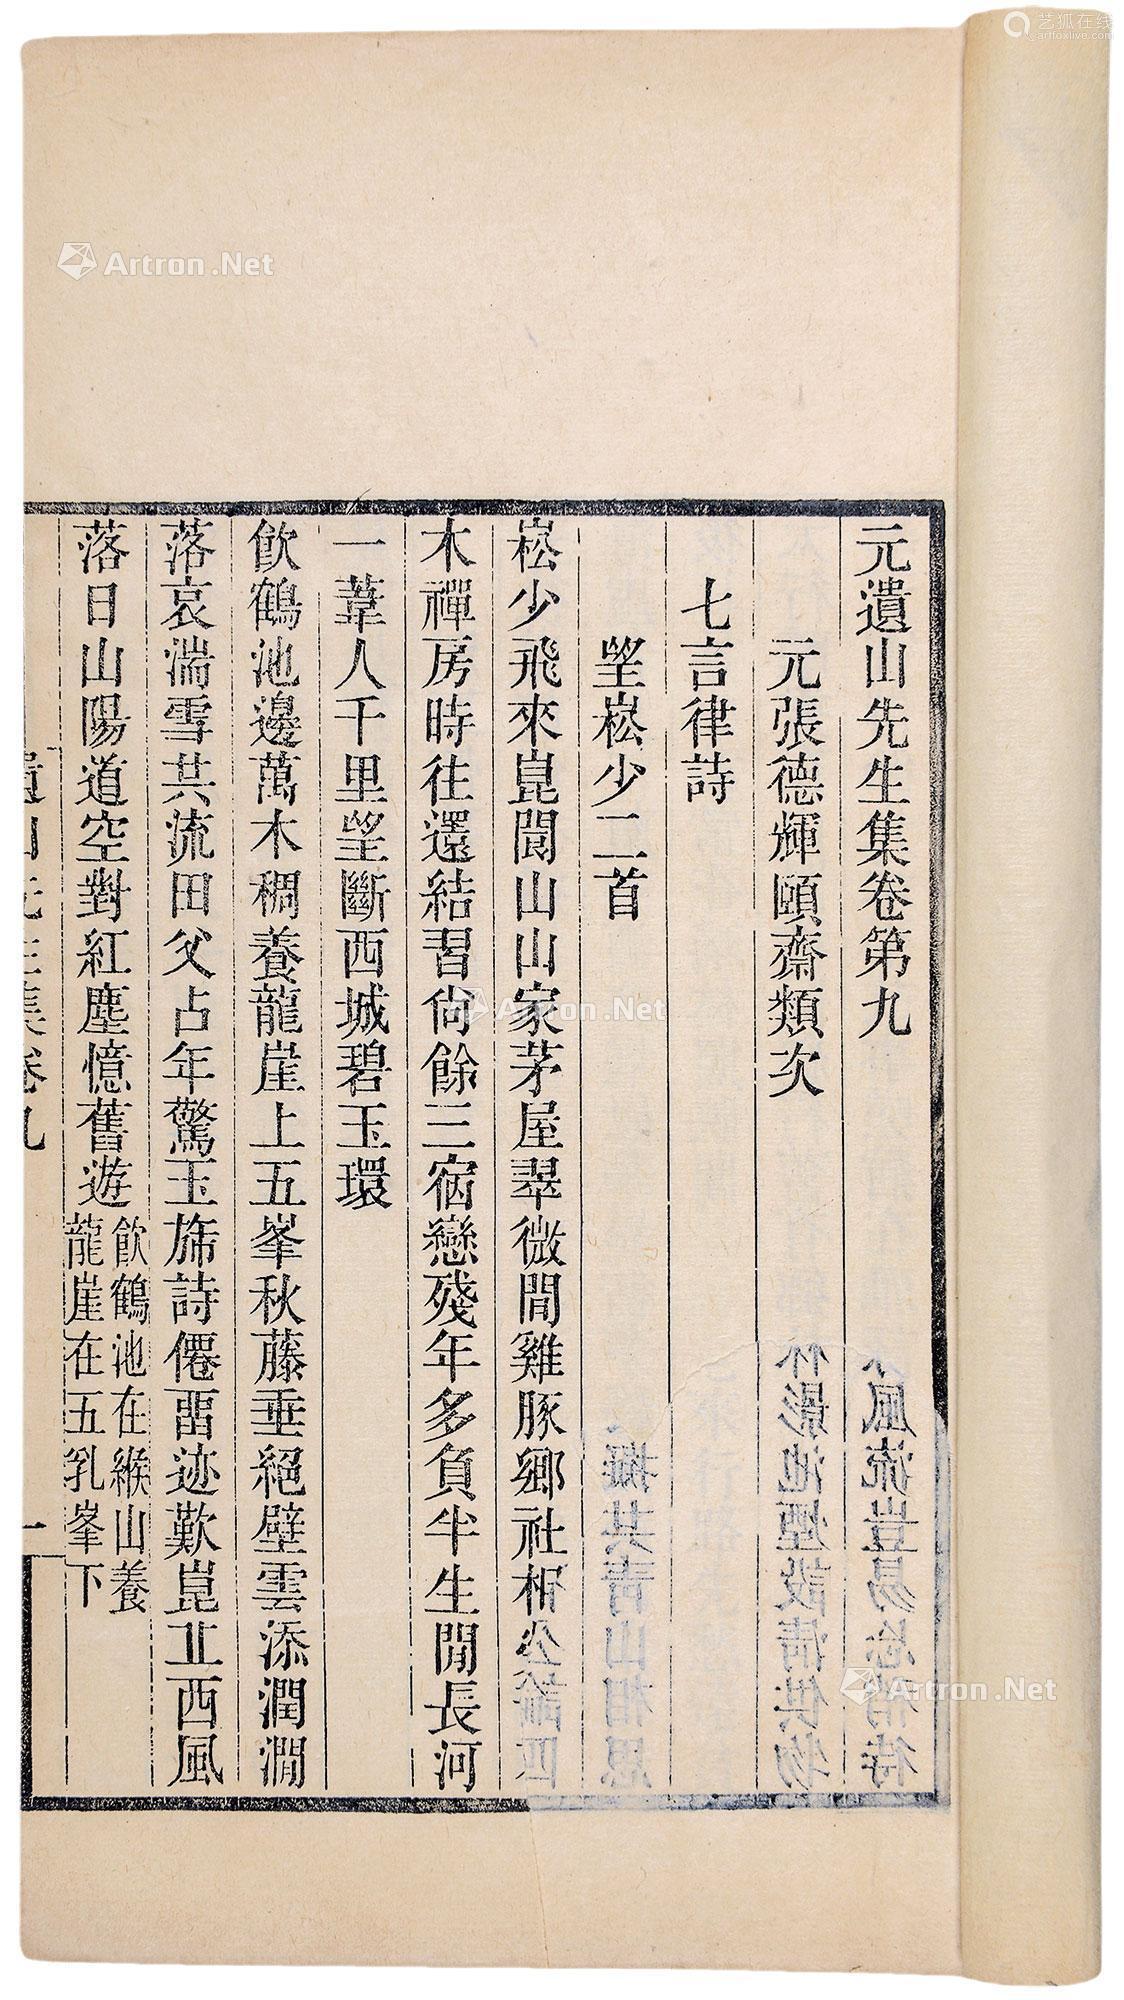 元遺山先生集卷第九
元張德輝頤齋類次
七言律詩
望崧少二首
崧少飛來崑閬山山家茅屋翠微間雞豚鄉社相公諭匹
木禪房時往還結習尙餘三宿戀殘年多負半生閒長河
一葦人千里望斷西城碧玉環
飲鶴池邊萬木稠養龍崖上五峯秋藤垂絕壁雲添潤澗
落哀湍雪共流田父占年驚玉斾詩僊畱迹歎崑丘西風
落日山陽道空對紅塵憶舊遊
飲鶴池在緱山養
龍崖在五乳峯下
遺山先生集卷九
一
艺狐在线
artfoxlive.com
Artron.Net
Artron.Net
Artron.Net